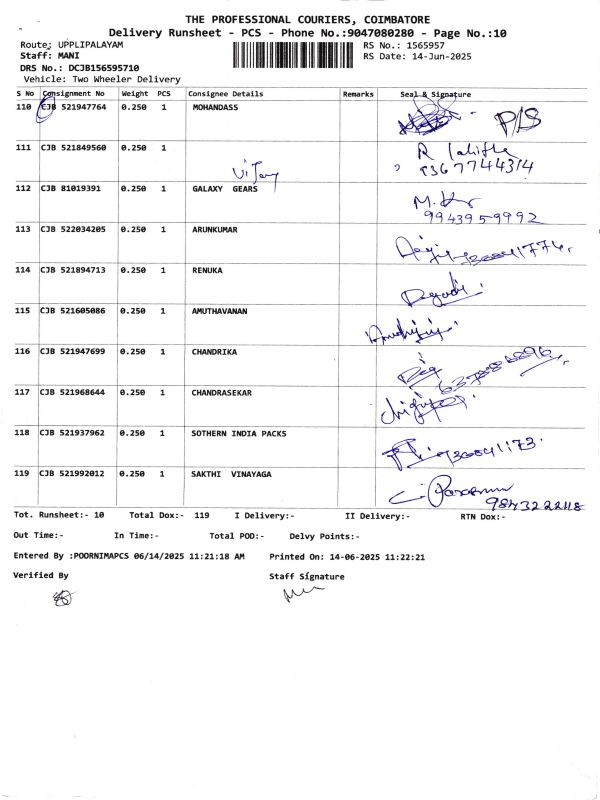 THE PROFESSIONAL COURIERS, COIMBATORE
Delivery Runsheet - PCS - Phone No.:9047080280 - Page No.:10
Route: UPPLIPALAYAM
RS No.: 1565957
Staff: MANI
RS Date: 14-Jun-2025
DRS No.: DCJB156595710
Vehicle: Two Wheeler Delivery
S No Consignment No Weight PCS Consignee Details Remarks Seal & Signature
110 CJB 521947764 0.250 1 MOHANDASS P/S
111 CJB 521849560 0.250 1 R Lalitha
9367744314
Vijay
112 CJB 81019391 0.250 1 GALAXY GEARS
9943959992
113 CJB 522034205 0.250 1 ARUNKUMAR
114 CJB 521894713 0.250 1 RENUKA
115 CJB 521605086 0.250 1 AMUTHAVANAN
116 CJB 521947699 0.250 1 CHANDRIKA
117 CJB 521968644 0.250 1 CHANDRASEKAR
118 CJB 521937962 0.250 1 SOTHERN INDIA PACKS
119 CJB 521992012 0.250 1 SAKTHI VINAYAGA
9843222118
Tot. Runsheet:- 10 Total Dox:- 119 I Delivery:- II Delivery:- RTN Dox:-
Out Time:- In Time:- Total POD:- Delvy Points:-
Entered By :POORNIMAPCS 06/14/2025 11:21:18 AM Printed On: 14-06-2025 11:22:21
Verified By Staff Signature